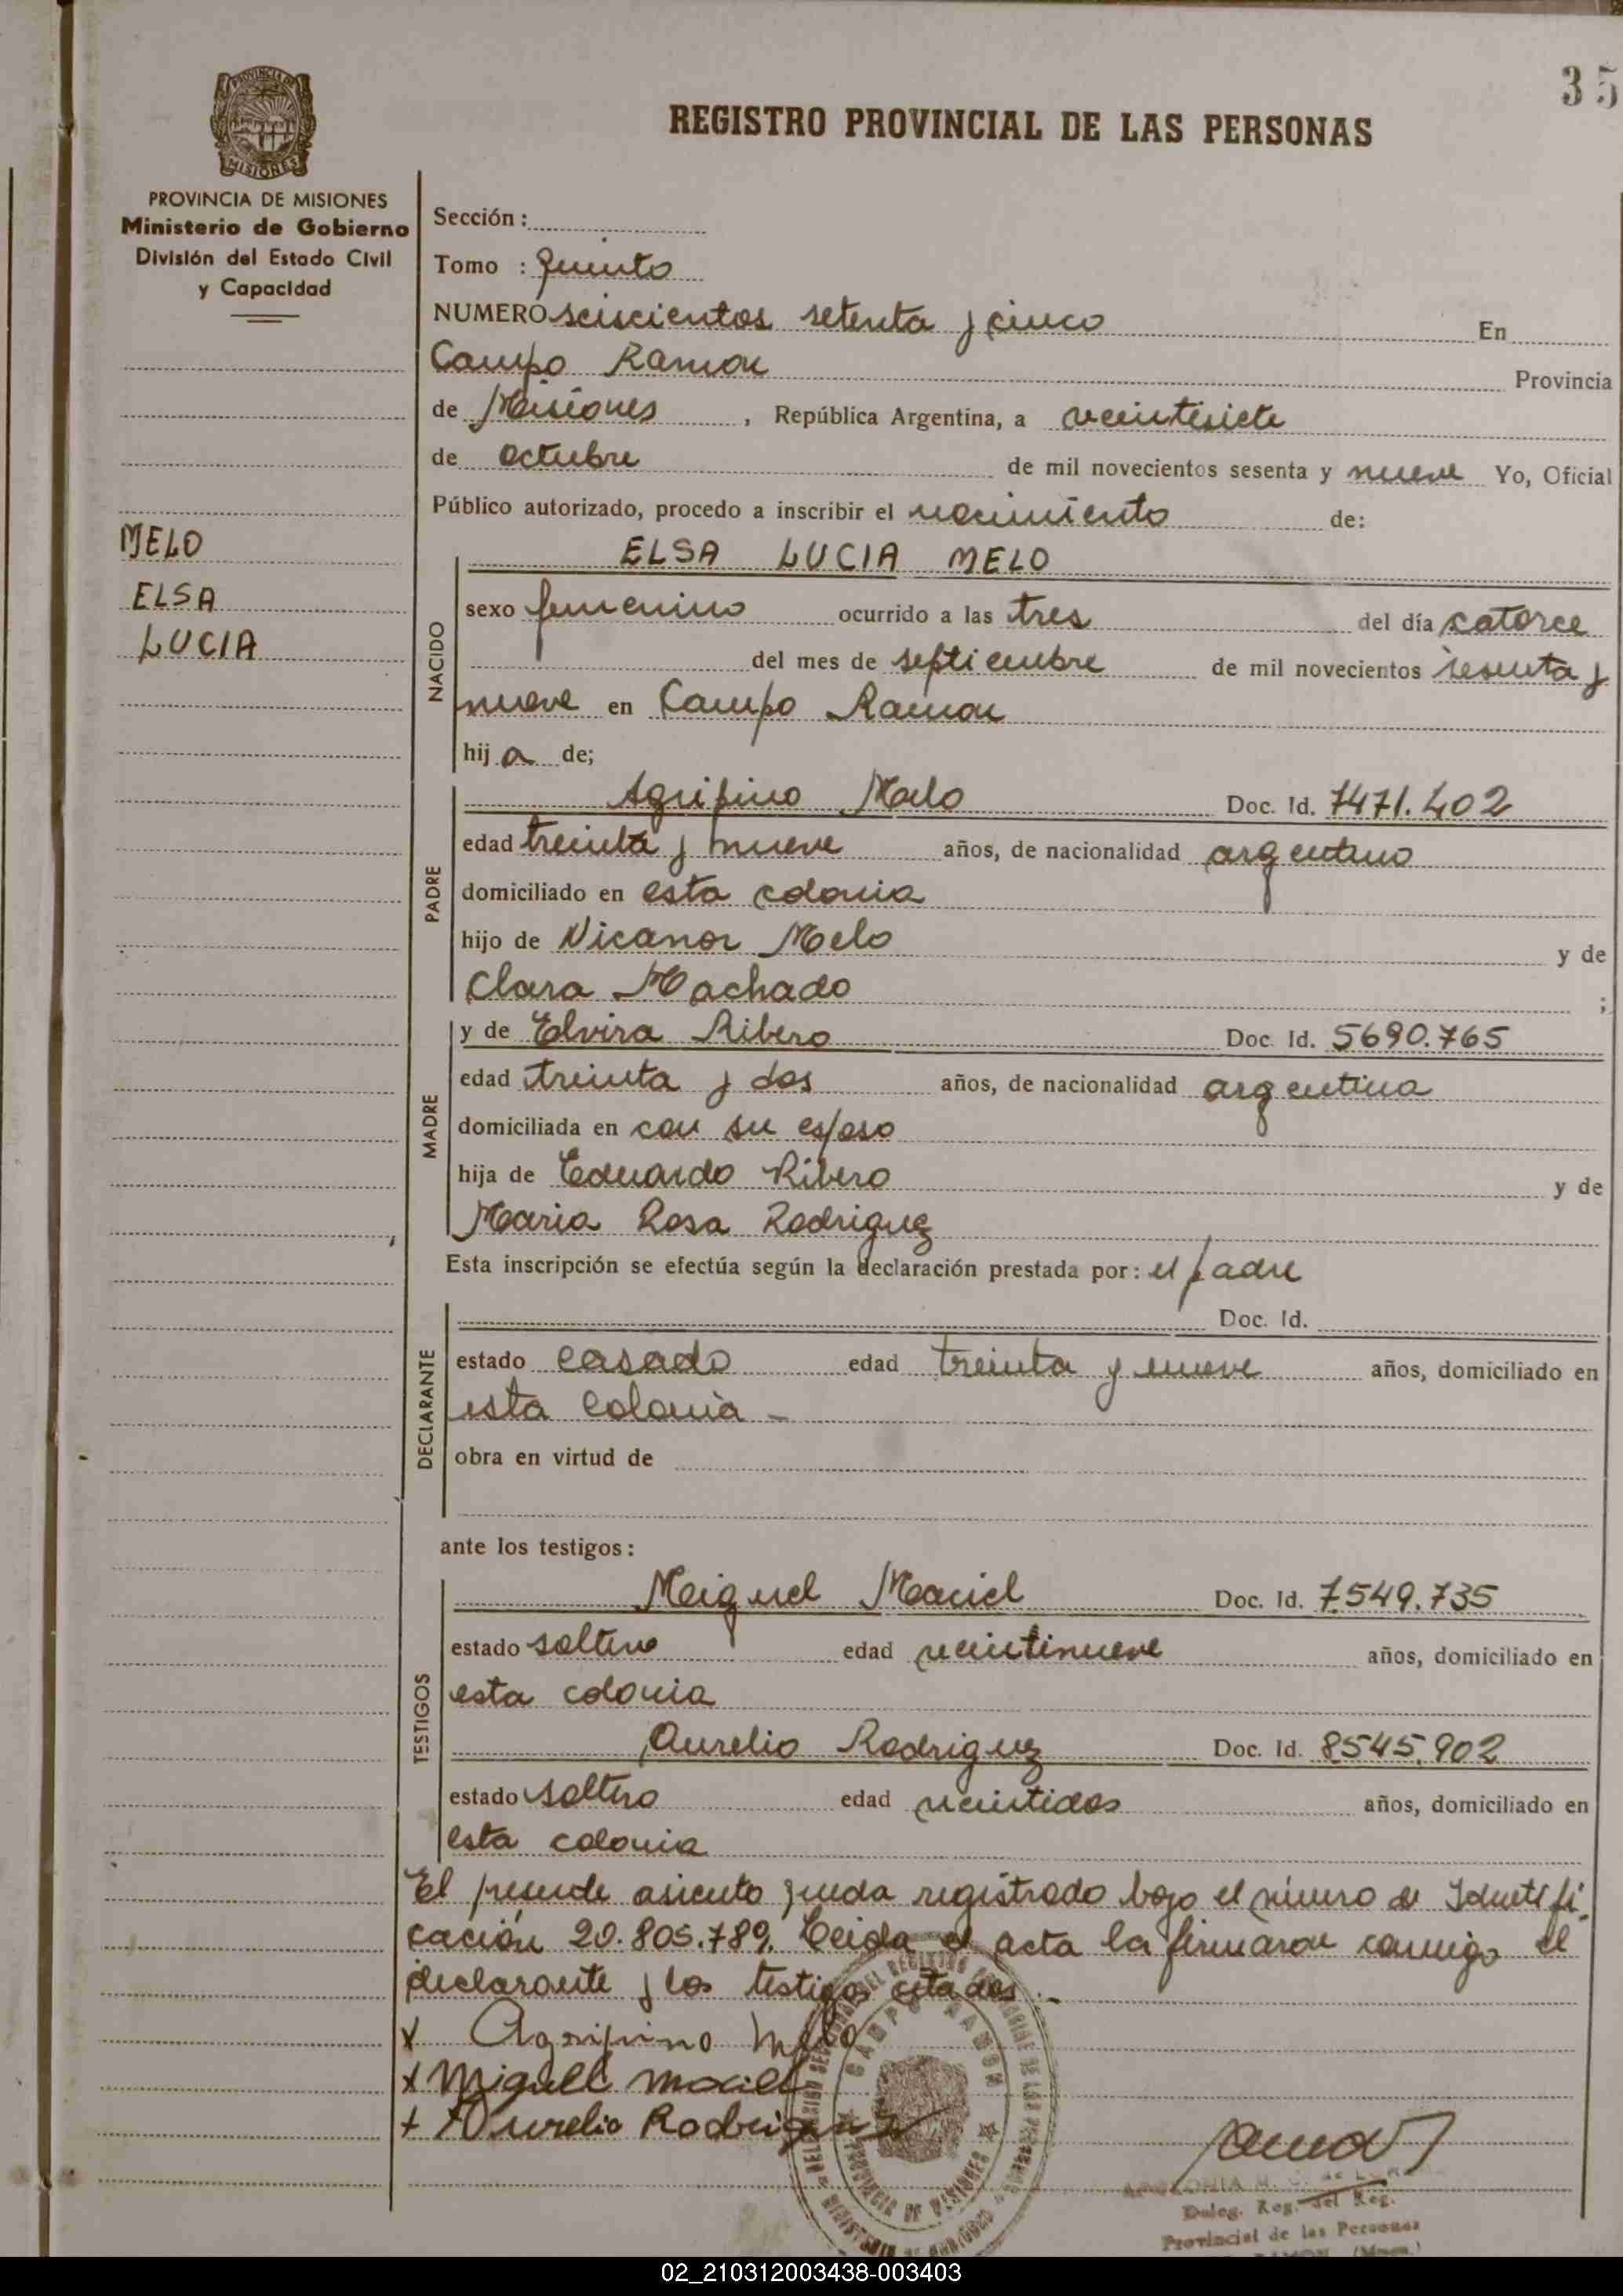 35
REGISTRO PROVINCIAL DE LAS PERSONAS
PROVINCIA DE MISIONES
Ministerio de Gobierno
División del Estado Civil
y Capacidad
MELO
ELSA
LUCIA
Sección:
Tomo : quinto
NUMERO seiscientos setenta y cinco En
Campo Ramon Provincia
de Misiones, República Argentina, a veintisiete
de octubre de mil novecientos sesenta y nueve Yo, Oficial
Público autorizado, procedo a inscribir el nacimiento de:
NACIDO
ELSA LUCIA MELO
sexo femenino ocurrido a las tres del día catorce
del mes de septiembre de mil novecientos sesenta y
nueve en Campo Ramon
hija de;
PADRE
Agripino Melo Doc. Id. 7471.402
edad treinta y nueve años, de nacionalidad argentino
domiciliado en esta colonia
hijo de Nicanor Melo y de
Clara Machado ;
MADRE
y de Elvira Ribero Doc. Id. 5690.765
edad treinta y dos años, de nacionalidad argentina
domiciliada en con su esposo
hija de Eduardo Ribero y de
Maria Rosa Rodriguez
Esta inscripción se efectúa según la declaración prestada por: el padre
DECLARANTE
Doc. Id.
estado casado edad treinta y nueve años, domiciliado en
esta colonia -
obra en virtud de
ante los testigos:
TESTIGOS
Miguel Maciel Doc. Id. 7.549.735
estado soltero edad veintinueve años, domiciliado en
esta colonia
Aurelio Rodriguez Doc. Id. 8545.902
estado soltero edad veintidos años, domiciliado en
esta colonia
El presente asiento queda registrado bajo el número de Identifi-
cación 20.805.789. Leida el acta la firmaron conmigo el
declarante y los testigos citados.-
x Agripino Melo
x Miguel Maciel
+ Aurelio Rodriguez
CAMPO RAMON
PROVINCIA DE MISIONES
Deleg. Reg. del Reg.
Provincial de las Personas
02_210312003438-003403